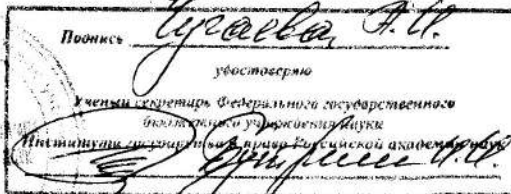 Подпись Чугаева, А.И.
удостоверяю
Ученый секретарь Федерального государственного
бюджетного учреждения науки
Института государства и права Российской академии наук